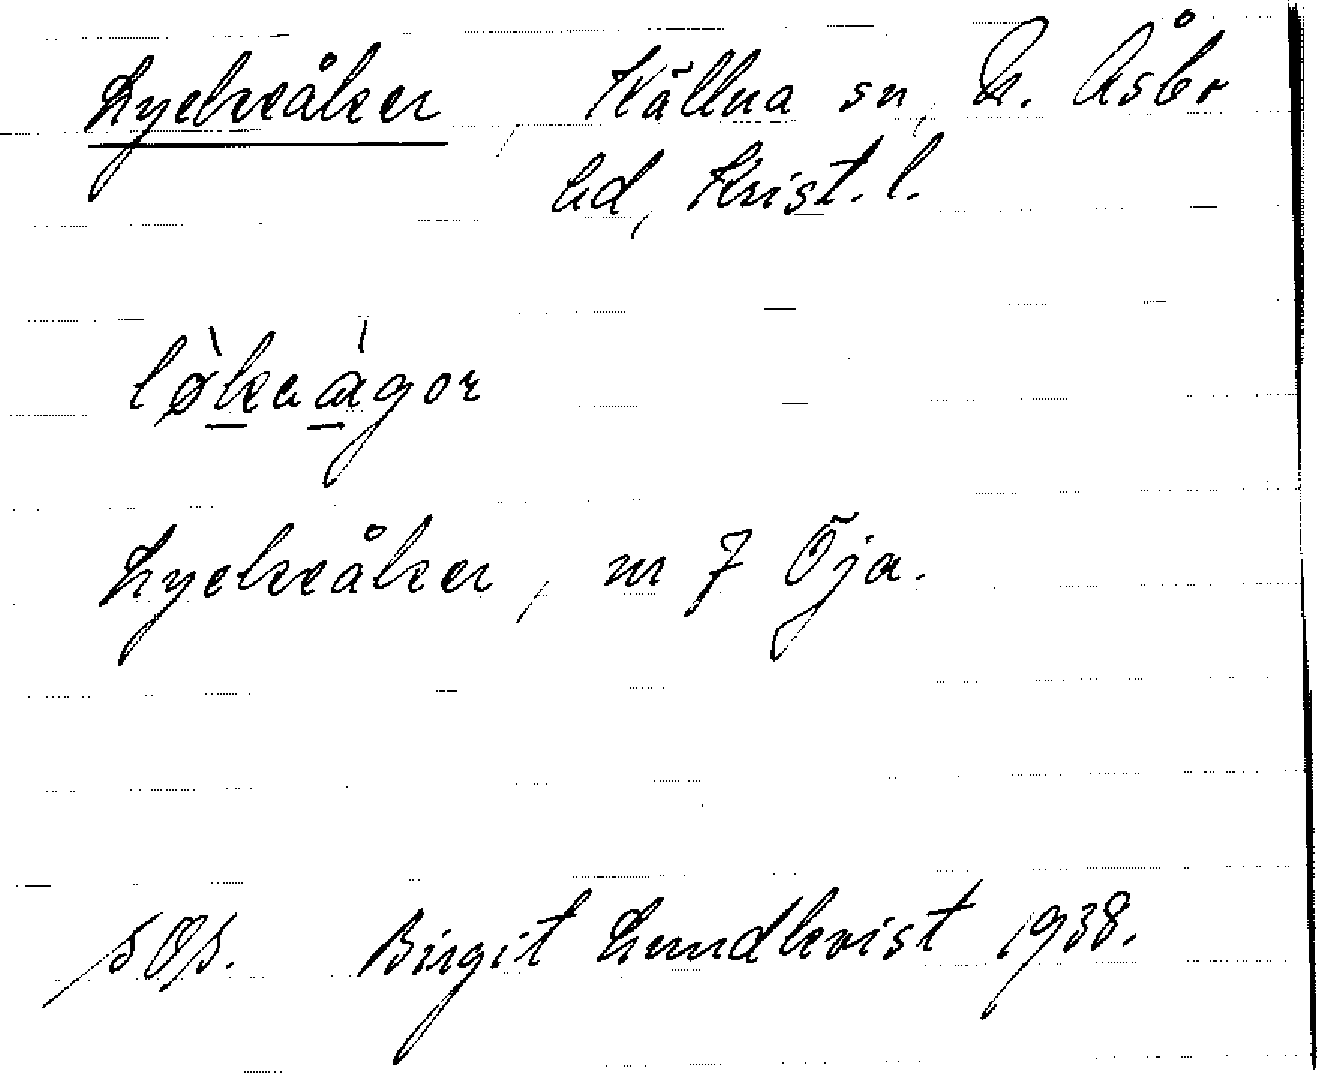 Lyckeåker Källna sn, N. Åsbo
hd, Krist. l.
løkaågor
Lyckeåker, nr 7 Öja.
Birgit Lundkvist 1938.